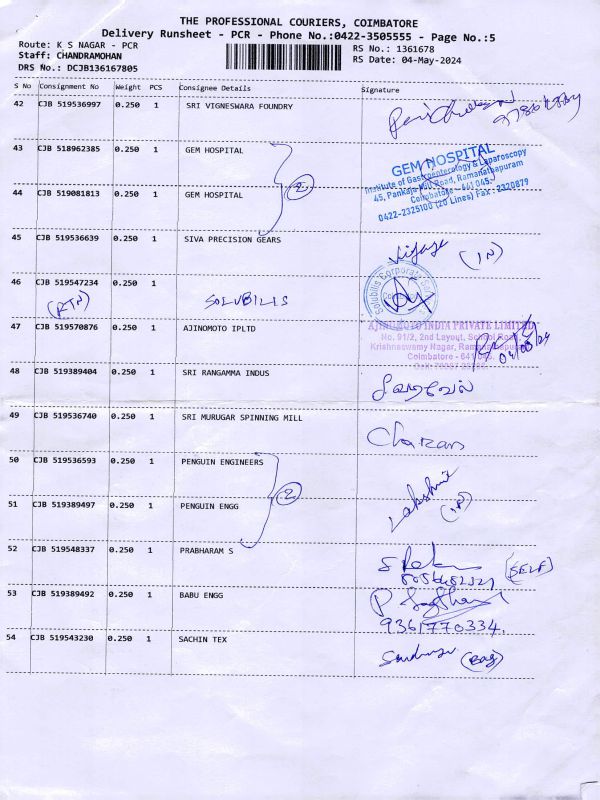 THE PROFESSIONAL COURIERS, COIMBATORE
Delivery Runsheet - PCR - Phone No.:0422-3505555 - Page No.:5
Route: K S NAGAR - PCR
Staff: CHANDRAMOHAN
DRS No.: DCJB136167805
RS No.: 1361678
RS Date: 04-May-2024
S No Consignment No Weight PCS Consignee Details Signature
42 CJB 519536997 0.250 1 SRI VIGNESWARA FOUNDRY
43 CJB 518962385 0.250 1 GEM HOSPITAL
GEM HOSPITAL
Institute of Gastroenterology & Laparoscopy
45, Pankaja Mill Road, Ramanathapuram
Coimbatore - 641 045.
0422-2325100 (20 Lines) Fax : 2320879
44 CJB 519081813 0.250 1 GEM HOSPITAL
2
45 CJB 519536639 0.250 1 SIVA PRECISION GEARS Vijaya (IN)
46 CJB 519547234 0.250 1
(RTN) SOLUBILIS
Solubilis Corporate
47 CJB 519570876 0.250 1 AJINOMOTO IPLTD
AJINOMOTO INDIA PRIVATE LIMITED
No. 91/2, 2nd Layout, School Road
Krishnaswamy Nagar, Ramanathapuram
Coimbatore - 641 045.
04/05/24
48 CJB 519389404 0.250 1 SRI RANGAMMA INDUS
49 CJB 519536740 0.250 1 SRI MURUGAR SPINNING MILL Charan
50 CJB 519536593 0.250 1 PENGUIN ENGINEERS
2 Lakshmi (IN)
51 CJB 519389497 0.250 1 PENGUIN ENGG
52 CJB 519548337 0.250 1 PRABHARAM S (SELF)
53 CJB 519389492 0.250 1 BABU ENGG
9361770334
54 CJB 519543230 0.250 1 SACHIN TEX (Bag)